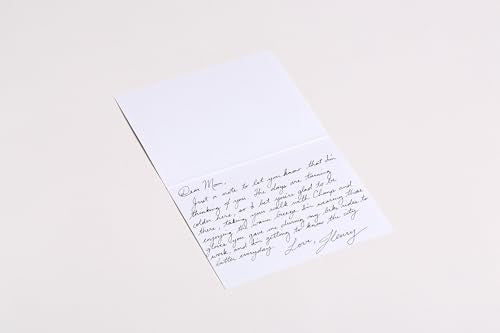 Dear Mom,
Just a note to let you know that I'm
thinking of you. The days are turning
colder here, so I bet you're glad to be
there, taking your walk with Champ and
enjoying the warm breeze. I'm wearing those
gloves you gave me during my bike rides to
work, and I'm getting to know the city
better everyday.
Love, Henry